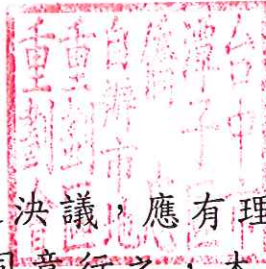 台中
潭子
僑
自辦市地
重劃區
重劃
決議，應有理
同意行之，本